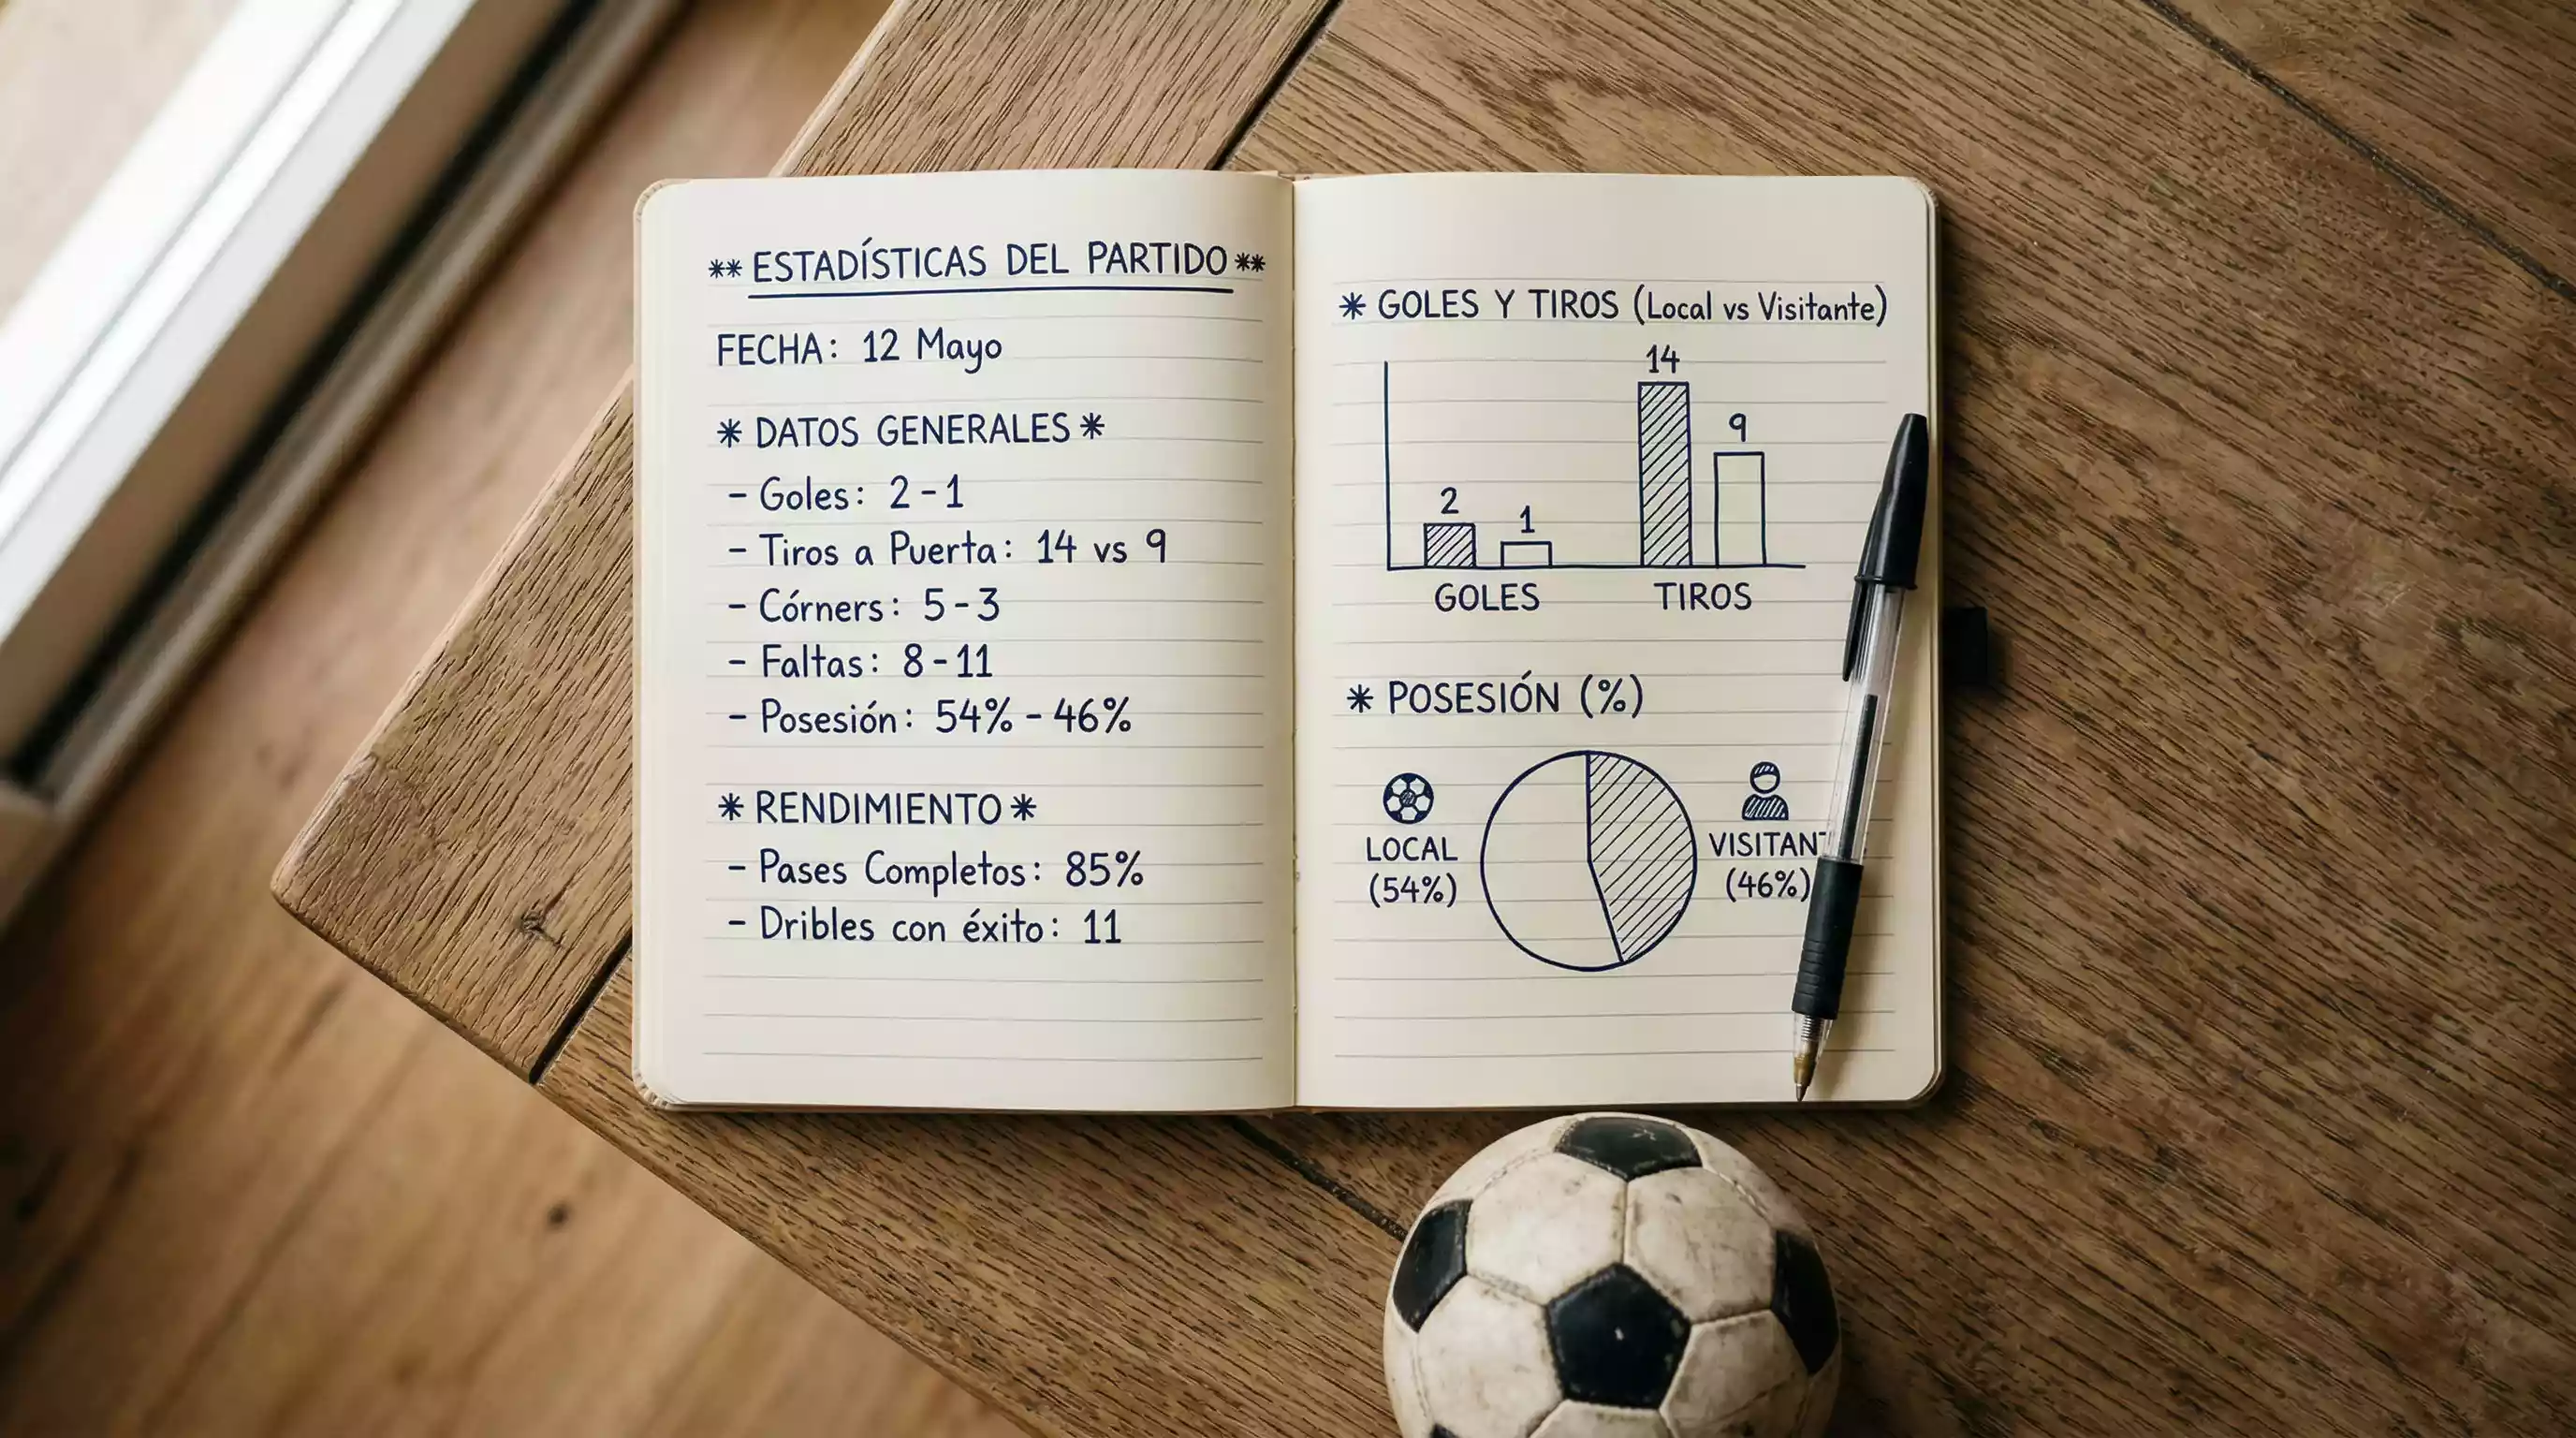 ** ESTADÍSTICAS DEL PARTIDO **
FECHA: 12 Mayo
* DATOS GENERALES *
- Goles: 2 - 1
- Tiros a Puerta: 14 vs 9
- Córners: 5 - 3
- Faltas: 8 - 11
- Posesión: 54% - 46%
* RENDIMIENTO *
- Pases Completos: 85%
- Dribles con éxito: 11
* GOLES Y TIROS (Local vs Visitante)
14
9
2
1
GOLES TIROS
* POSESIÓN (%)
LOCAL
(54%)
(46%)